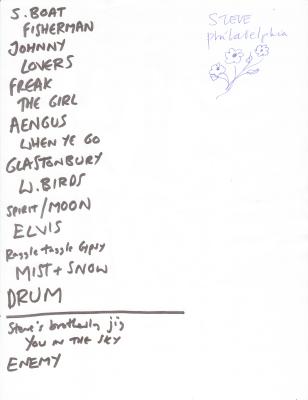 S. BOAT
FISHERMAN
JOHNNY
LOVERS
FREAK
THE GIRL
AENGUS
WHEN YE GO
GLASTONBURY
W. BIRDS
SPIRIT/MOON
ELVIS
Raggle taggle Gypsy
MIST + SNOW
DRUM
Steve's brotherly jig
YOU IN THE SKY
ENEMY
STEVE
philatelphia